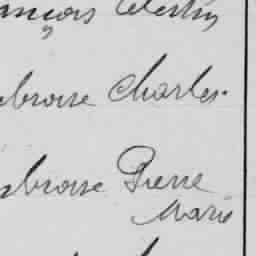 ançois Célestin
broise Charles
broise Pierre
Marie